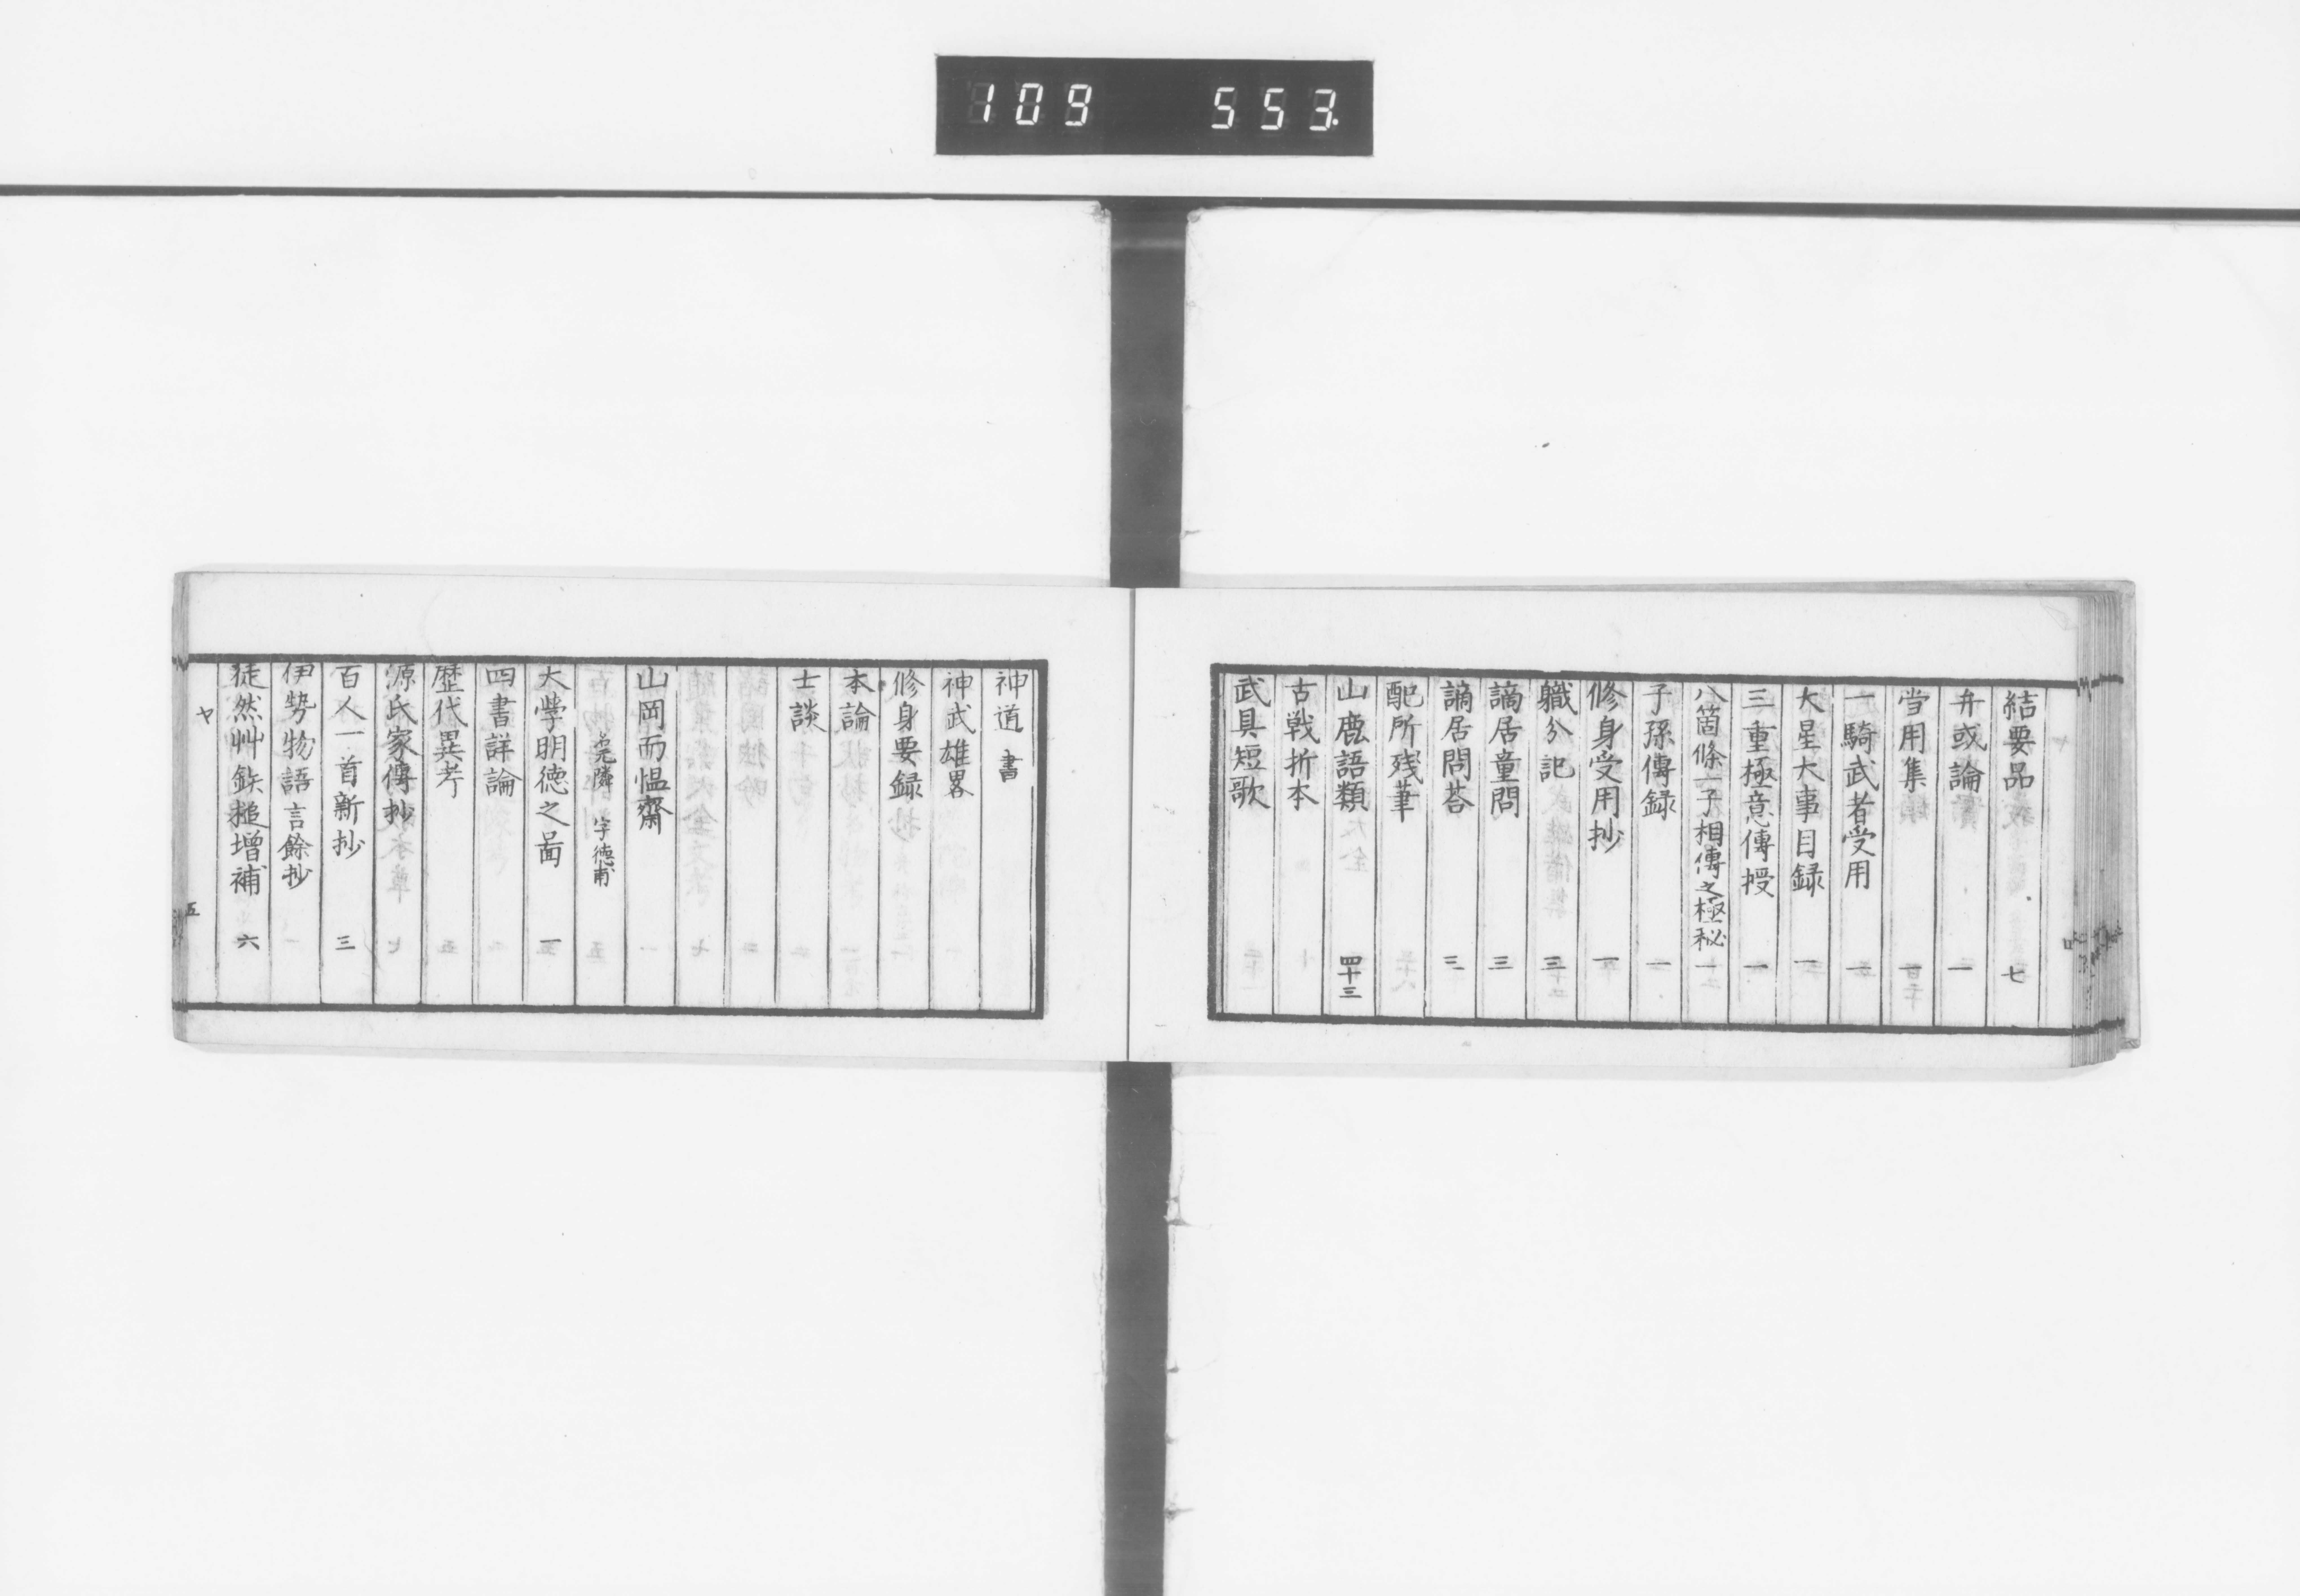 109 553.
結要品 七
弁或論 一
当用集 一
一騎武者受用 一
大星大事目録 一
三重極意傳授 一
八箇條一子相傳之極秘 一
子孫傳録 一
修身受用抄 一
職分記 三
謫居童問 三
謫居問荅 三
配所残筆
山鹿語類 四十三
古戦折本
武具短歌
神道書
神武雄畧
修身要録
本論
士談
山岡而愠齋
堯隣 字德甫
大學明徳之啚 一
四書詳論
歴代異考
源氏家傳抄
百人一首新抄 三
伊勢物語言餘抄
徒然艸鉃槌增補 六
ヤ 五